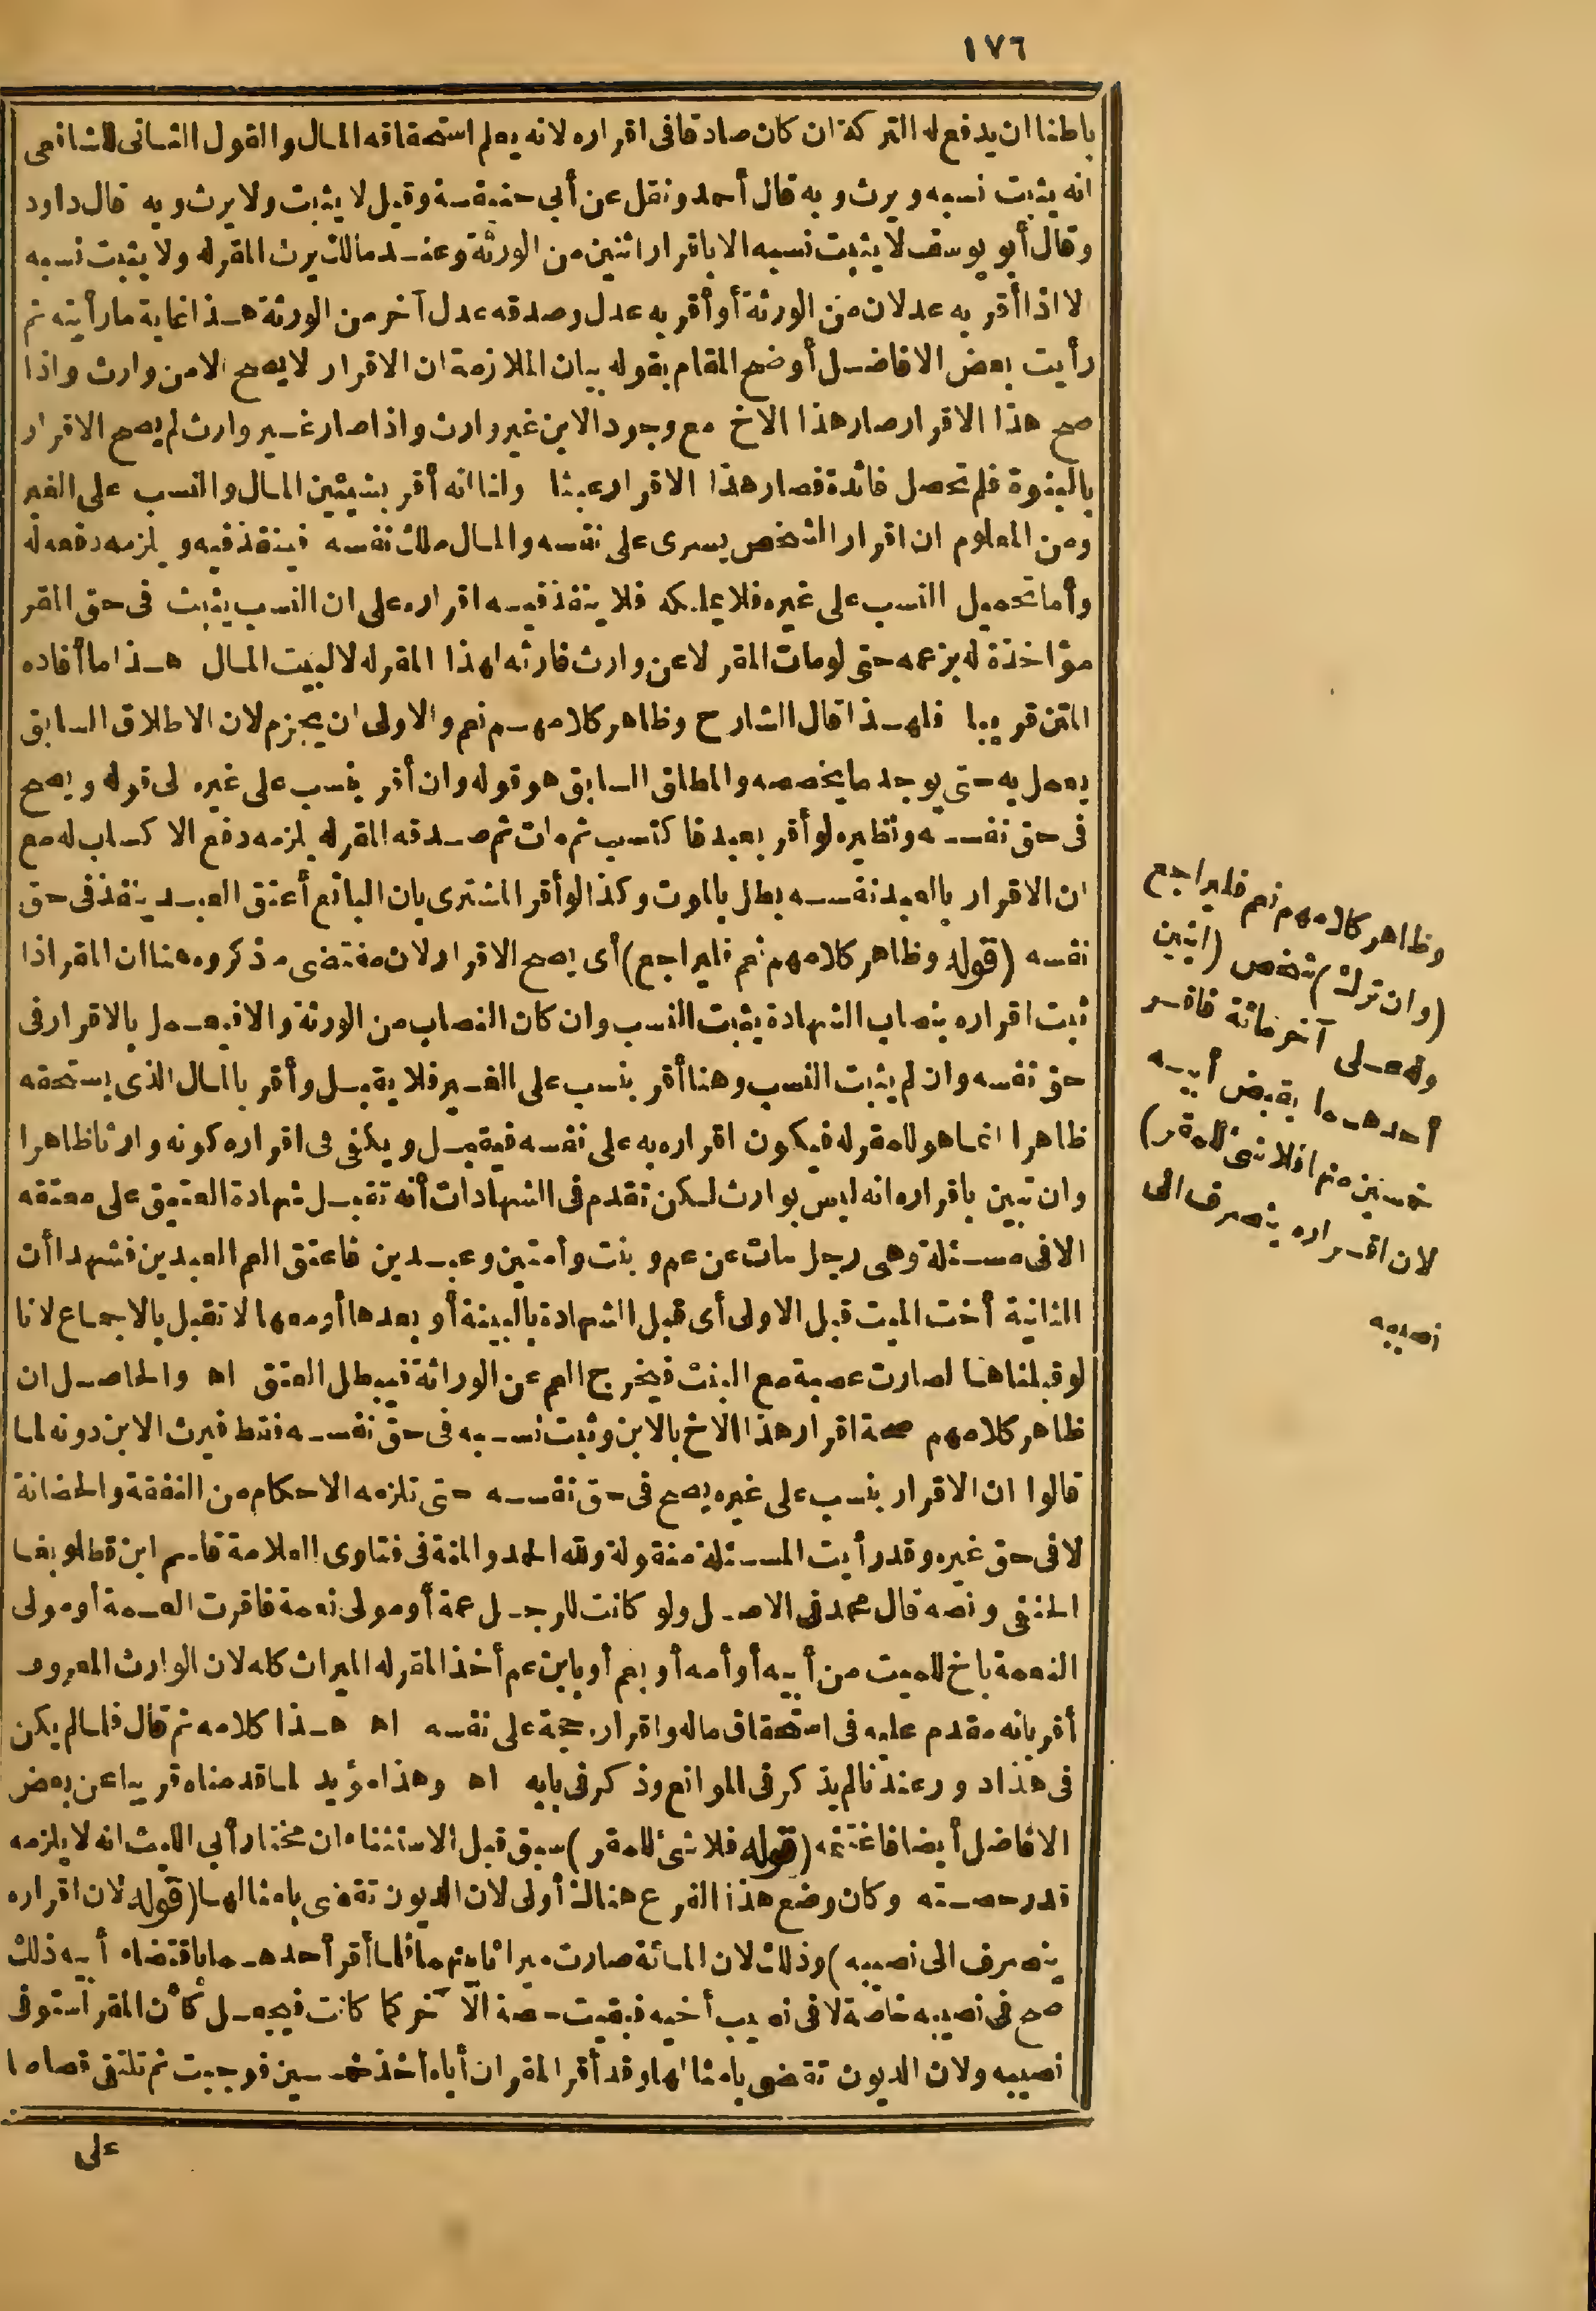 ١٧٦
باطنا ان يدفع له التركة ان كان صادقا فى اقراره لانه يعلم استحقاقه المال والقول الثانى للشافعى
انه يثبت نسبه ويرث وبه قال أحمد ونقل عن أبى حنيفة وقيل لا يثبت ولا يرث وبه قال داود
وقال أبو يوسف لا يثبت نسبه الا باقرار اثنين من الورثة وعند مالك يرث المقر له ولا يثبت نسبه
لا اذا أقر به عدلان من الورثة أو أقر به عدل وصدقه عدل آخر من الورثة هذا غاية ما رأيته ثم
رأيت بعض الافاضل أوضح المقام بقوله بيان الملازمة ان الاقرار لا يصح الا من وارث واذا
صح هذا الاقرار صار هذا الاخ مع وجود الابن غير وارث واذا صار غير وارث لم يصح الاقرار
بالبنوة فلم تحصل فائدة فصار هذا الاقرار عبثا ولنا انه أقر بشيئين المال والنسب على الغير
ومن المعلوم ان اقرار الشخص يسرى على نفسه والمال ملك نفسه فينفذ فيه ويلزمه دفعه له
وأما تحميل النسب على غيره فلا يملكه فلا ينفذ فيه اقراره على ان النسب يثبت فى حق المقر
مؤاخذة له بزعمه حتى لو مات المقر لا عن وارث فارثه لهذا المقر له لا لبيت المال هذا ما أفاده
المتن قريبا فلهذا قال الشارح وظاهر كلامهم نعم والاولى ان يجزم لان الاطلاق السابق
يعمل به حتى يوجد ما يخصصه والمطلق السابق هو قوله وان أقر بنسب على غيره لى قوله ويصح
فى حق نفسه ونظيره لو أقر بعبد فاكتسب ثم مات ثم صدقه المقر له يلزمه دفع الاكساب له مع
ان الاقرار بالعبد نفسه بطل بالموت وكذا لو أقر المشترى بان البائع أعتق العبد ينفذ فى حق
نفسه (قوله وظاهر كلامهم نعم فليراجع) أى يصح الاقرار لان مقتضى ما ذكروه هنا ان المقر اذا
ثبت اقراره بنصاب الشهادة يثبت النسب وان كان النصاب من الورثة والا فيعمل بالاقرار فى
حق نفسه وان لم يثبت النسب وهنا أقر بنسب على الغير فلا يقبل وأقر بالمال الذى يستحقه
ظاهرا انما هو للمقر له فيكون اقراره به على نفسه فيقبل ويكفى فى اقراره كونه وارثا ظاهرا
وان تبين باقراره انه ليس بوارث لكن تقدم فى الشهادات أنه تقبل شهادة العتيق على معتقه
الا فى مسئلة وهى رجل مات عن عم وبنت وأمتين وعبدين فاعتق العم العبدين فشهدا أن
الثانية أخت الميت قبل الاولى أى قبل الشهادة بالبينة أو بعدها أو معها لا تقبل بالاجماع لانا
لو قبلناها لصارت عصبة مع البنت فيخرج العم عن الوراثة فيبطل العتق اه والحاصل ان
ظاهر كلامهم صحة اقرار هذا الاخ بالابن وثبت نسبه فى حق نفسه فقط فيرث الابن دونه لما
قالوا ان الاقرار بنسب على غيره يصح فى حق نفسه حتى تلزمه الاحكام من النفقة والحضانة
لا فى حق غيره وقد رأيت المسئلة منقولة ولله الحمد والمنة فى فتاوى العلامة قاسم ابن قطلوبغا
الحنفى ونصه قال محمد فى الاصل ولو كانت للرجل عمة أو مولى نعمة فاقرت العمة أو مولى
النعمة باخ للميت من أبيه أو أمه أو بعم أو بابن عم أخذ المقر له الميراث كله لان الوارث المعروف
أقر بانه مقدم عليه فى استحقاق ماله واقراره حجة على نفسه اه هذا كلامه ثم قال فلما لم يكن
فى هذا دور عندنا لم يذكر فى الموانع وذكر فى بابه اه وهذا مؤيد لما قدمناه قريبا عن بعض
الافاضل أيضا فاغتنمه (قوله فلا شئ للمقر) سبق قبل الاستثناء ان مختار أبى الليث انه لا يلزمه
قدر حصته وكان وضع هذا الفرع هنالك أولى لان الديون تقضى بامثالها (قوله لان اقراره
ينصرف الى نصيبه) وذلك لان المائة صارت ميراثا بينهما فلما أقر أحدهما باقتضاء أبيه ذلك
صح فى نصيبه خاصة لا فى نصيب أخيه فبقيت حصة الآخر كما كانت فيجعل كأن المقر استوفى
نصيبه ولان الديون تقضى بامثالها وقد أقر المقر ان أباه أخذ خمسين فوجبت ثم تلتقى قصاصا
على
وظاهر كلامهم نعم فليراجع
(وان ترك) شخص (ابنين
وله على آخر مائة فاقر
أحدهما بقبض أبيه
خمسين منها فلا شئ للمقر)
لان اقراره ينصرف الى
نصيبه